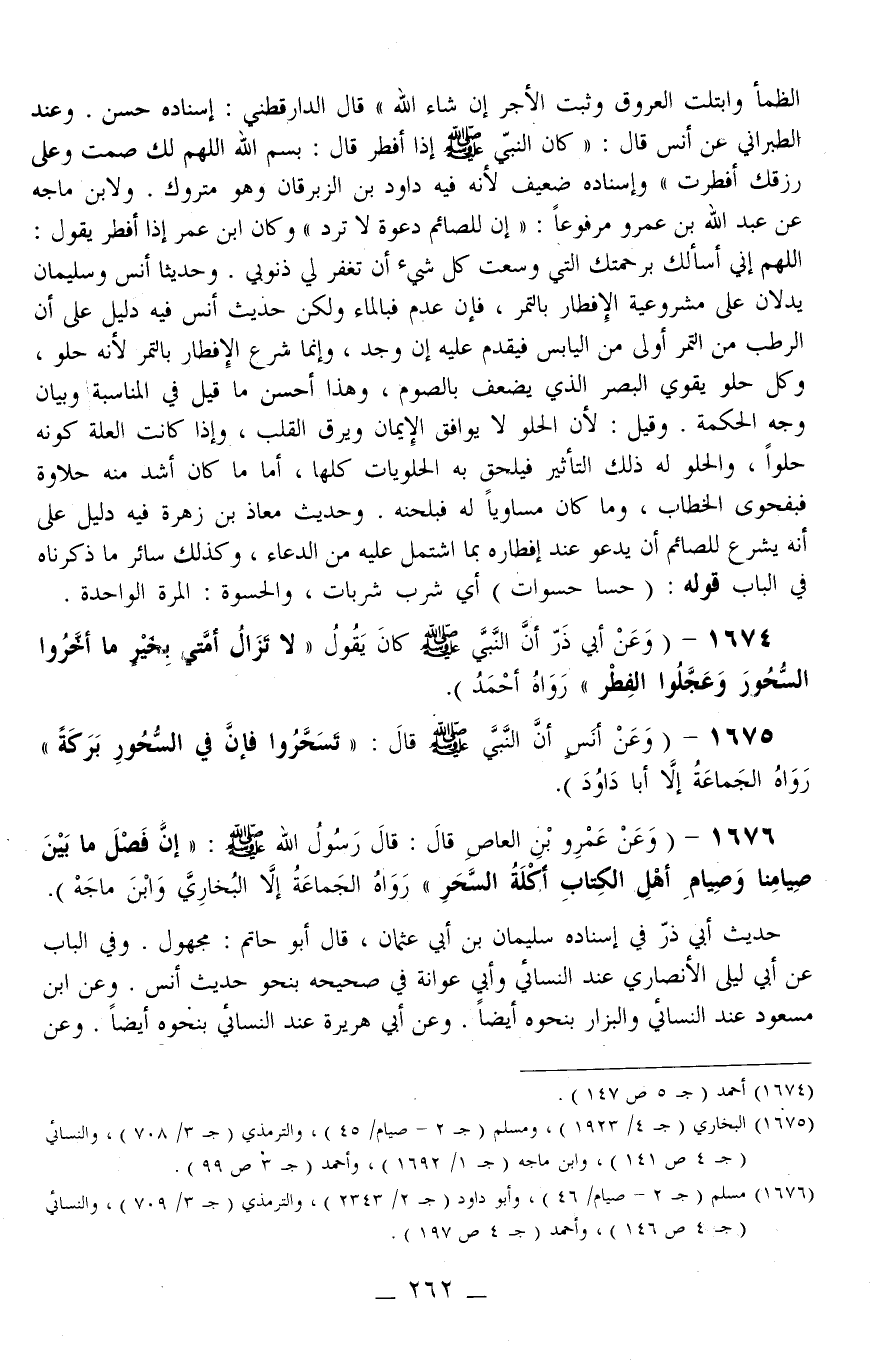 الظمأ وابتلت العروق وثبت الأجر إن شاء الله » قال الدارقطني : إسناده حسن . وعند
الطبراني عن أنس قال : « كان النبيّ ﷺ إذا أفطر قال : بسم الله اللهم لك صمت وعلى
رزقك أفطرت » وإسناده ضعيف لأنه فيه داود بن الزبرقان وهو متروك . ولابن ماجه
عن عبد الله بن عمرو مرفوعاً : « إن للصائم دعوة لا ترد » وكان ابن عمر إذا أفطر يقول :
اللهم إني أسألك برحمتك التي وسعت كل شيء أن تغفر لي ذنوبي . وحديثا أنس وسليمان
يدلان على مشروعية الإفطار بالتمر ، فإن عدم فبالماء ولكن حديث أنس فيه دليل على أن
الرطب من التمر أولى من اليابس فيقدم عليه إن وجد ، وإنما شرع الإفطار بالتمر لأنه حلو ،
وكل حلو يقوي البصر الذي يضعف بالصوم ، وهذا أحسن ما قيل في المناسبة وبيان
وجه الحكمة . وقيل : لأن الحلو لا يوافق الإيمان ويرق القلب ، وإذا كانت العلة كونه
حلواً ، والحلو له ذلك التأثير فيلحق به الحلويات كلها ، أما ما كان أشد منه حلاوة
فبفحوى الخطاب ، وما كان مساوياً له فبلحنه . وحديث معاذ بن زهرة فيه دليل على
أنه يشرع للصائم أن يدعو عند إفطاره بما اشتمل عليه من الدعاء ، وكذلك سائر ما ذكرناه
في الباب قوله : ( حسا حسوات ) أي شرب شربات ، والحسوة : المرة الواحدة .
١٦٧٤ – ( وَعَنْ أبي ذَرّ أنَّ النَّبيَّ ﷺ كانَ يَقُولُ « لا تَزَالُ أمَّتي بِخَيْرٍ ما أخَّرُوا
السُّحُورَ وَعَجَّلُوا الفِطْر » رَوَاهُ أحْمَدُ ).
١٦٧٥ – ( وَعَنْ أنَسٍ أنَّ النَّبيَّ ﷺ قالَ : « تَسَحَّرُوا فإنَّ في السُّحُورِ بَرَكَةً »
رَوَاهُ الجَماعَةُ إلَّا أبا دَاوُدَ ).
١٦٧٦ – ( وَعَنْ عَمْرِو بْنِ العاصِ قالَ : قالَ رَسُولُ الله ﷺ : « إنَّ فَصْلَ ما بَيْنَ
صِيامِنا وَصِيامِ أهْلِ الكِتابِ أكْلَةُ السَّحَرِ » رَوَاهُ الجَماعَةُ إلَّا البُخاريَّ وَابْنَ ماجَهْ ).
حديث أبي ذرّ في إسناده سليمان بن أبي عثمان ، قال أبو حاتم : مجهول . وفي الباب
عن أبي ليلى الأنصاري عند النسائي وأبي عوانة في صحيحه بنحو حديث أنس . وعن ابن
مسعود عند النسائي والبزار بنحوه أيضاً . وعن أبي هريرة عند النسائي بنحوه أيضاً . وعن
(١٦٧٤) أحمد ( جـ ٥ ص ١٤٧ ) .
(١٦٧٥) البخاري ( جـ ٤/ ١٩٢٣ ) ، ومسلم ( جـ ٢ – صيام/ ٤٥ ) ، والترمذي ( جـ ٣/ ٧٠٨ ) ، والنسائي
( جـ ٤ ص ١٤١ ) ، وابن ماجه ( جـ ١/ ١٦٩٢ ) ، وأحمد ( جـ ٣ ص ٩٩ ) .
(١٦٧٦) مسلم ( جـ ٢ – صيام/ ٤٦ ) ، وأبو داود ( جـ ٢/ ٢٣٤٣ ) ، والترمذي ( جـ ٣/ ٧٠٩ ) ، والنسائي
( جـ ٤ ص ١٤٦ ) ، وأحمد ( جـ ٤ ص ١٩٧ ) .
– ٢٦٢ –